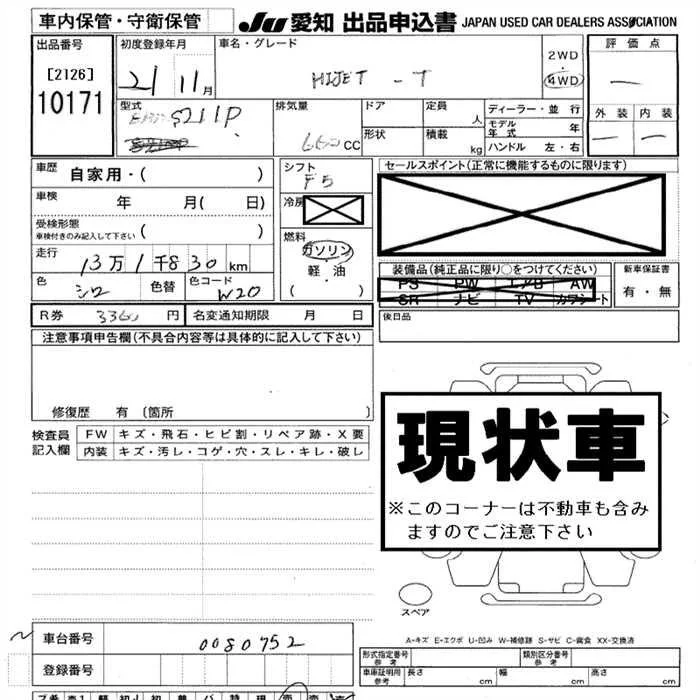 車内保管・守衛保管
JU 愛知 出品申込書 JAPAN USED CAR DEALERS ASSOCIATION
出品番号 初度登録年月 車名・グレード 2WD 評価点
[2126] 21 11月 HIJET - T ・ 4WD —
10171 型式 排気量 ドア 定員 ディーラー・並行 外装 内装
S211P 660CC 人 モデル年式 年 — —
形状 積載 kg ハンドル 左・右
車歴 自家用・( ) シフト F5 セールスポイント(正常に機能するものに限ります)
車検 年 月( 日) 冷房
受検形態 ( )
車検付きのみ記入して下さい
燃料
走行 13万1千830km ガソリン 装備品(純正品に限り○をつけてください) 新車保証書
軽・油 PS PW エアB AW 有・無
色 シロ 色替 色コード W20 ( ) SR ナビ TV カワシート
R券 3360円 名変通知期限 月 日 後日品
注意事項申告欄(不具合内容等は具体的に記入して下さい)
修復歴 有〔箇所 〕
現状車
※このコーナーは不動車も含み
ますのでご注意下さい
検査員 FW キズ・飛石・ヒビ割・リペア跡・X要
記入欄 内装 キズ・汚レ・コゲ・穴・スレ・キレ・破レ
スペア
A-キズ E-エクボ U-凹み W-補修跡 S-サビ C-腐食 XX-交換済
車台番号 0080752
形式指定番号 参考 類別区分番号 参考
登録番号 車庫証明用 参考 長さ cm 幅 cm 高さ cm